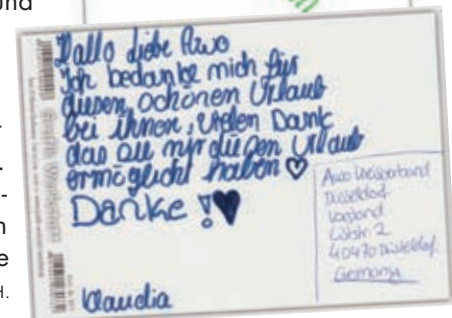 und
Hallo liebe Awo
Ich bedanke mich für
diesen schönen Urlaub
bei ihnen, vielen Dank
das sie mir diesen Urlaub
ermöglicht haben ♡
Danke !♥
Claudia
Awo Kreisverband
Düsseldorf
Vorstand
40470 Düsseldorf
Germany
-
n
e
H.